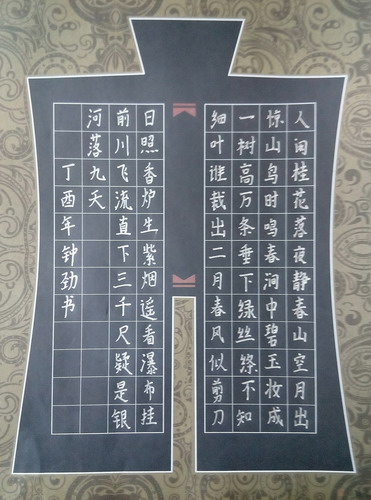 人闲桂花落夜静春山空月出
惊山鸟时鸣春涧中碧玉妆成
一树高万条垂下绿丝绦不知
细叶谁裁出二月春风似剪刀
日照香炉生紫烟遥看瀑布挂
前川飞流直下三千尺疑是银
河落九天
丁酉年钟劲书